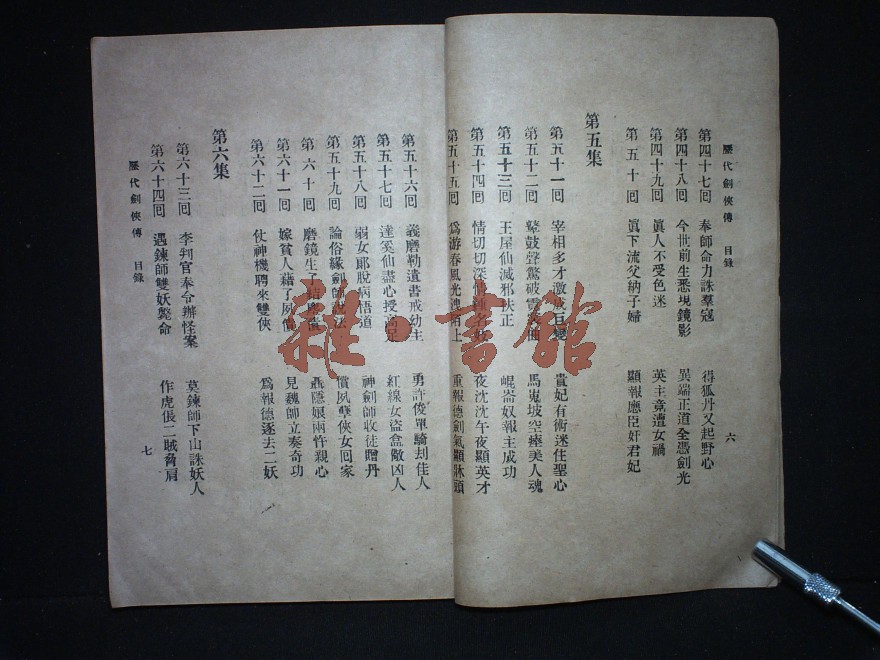 歷代劍俠傳 目錄 六
第四十七回 奉師命力誅羣寇 得狐丹又起野心
第四十八回 今世前生悉現鏡影 異端正道全憑劍光
第四十九回 眞人不受色迷 英主竟遭女禍
第五十回 眞下流父納子婦 顯報應臣奸君妃
第五集
第五十一回 宰相多才激成巨變 貴妃有術迷住聖心
第五十二回 鼙鼓聲驚破霓裳曲 馬嵬坡空瘞美人魂
第五十三回 王屋仙滅邪扶正 崐崙奴報主成功
第五十四回 情切切深情 夜沈沈午夜顯英才
第五十五回 爲游春風光洩陌上 重報德劍氣顯牀頭
第五十六回 義磨勒遺書戒幼主 勇許俊單騎刦佳人
第五十七回 達奚仙盡心授高足 紅線女盜盒儆凶人
第五十八回 弱女郎脫病悟道 神劍師收徒贈丹
第五十九回 論俗緣劍師說法 償夙孽俠女回家
第六十回 磨鏡生了結 聶隱娘兩忤親心
第六十一回 嫁貧人藉了夙債 見魏帥立奏奇功
第六十二回 仗神機聘來雙俠 爲報德逐去二妖
第六集
第六十三回 李判官奉令辦怪案 莫鍊師下山誅妖人
第六十四回 遇鍊師雙妖斃命 作虎倀二賊脅肩
歷代劍俠傳 目錄 七
雜·書館